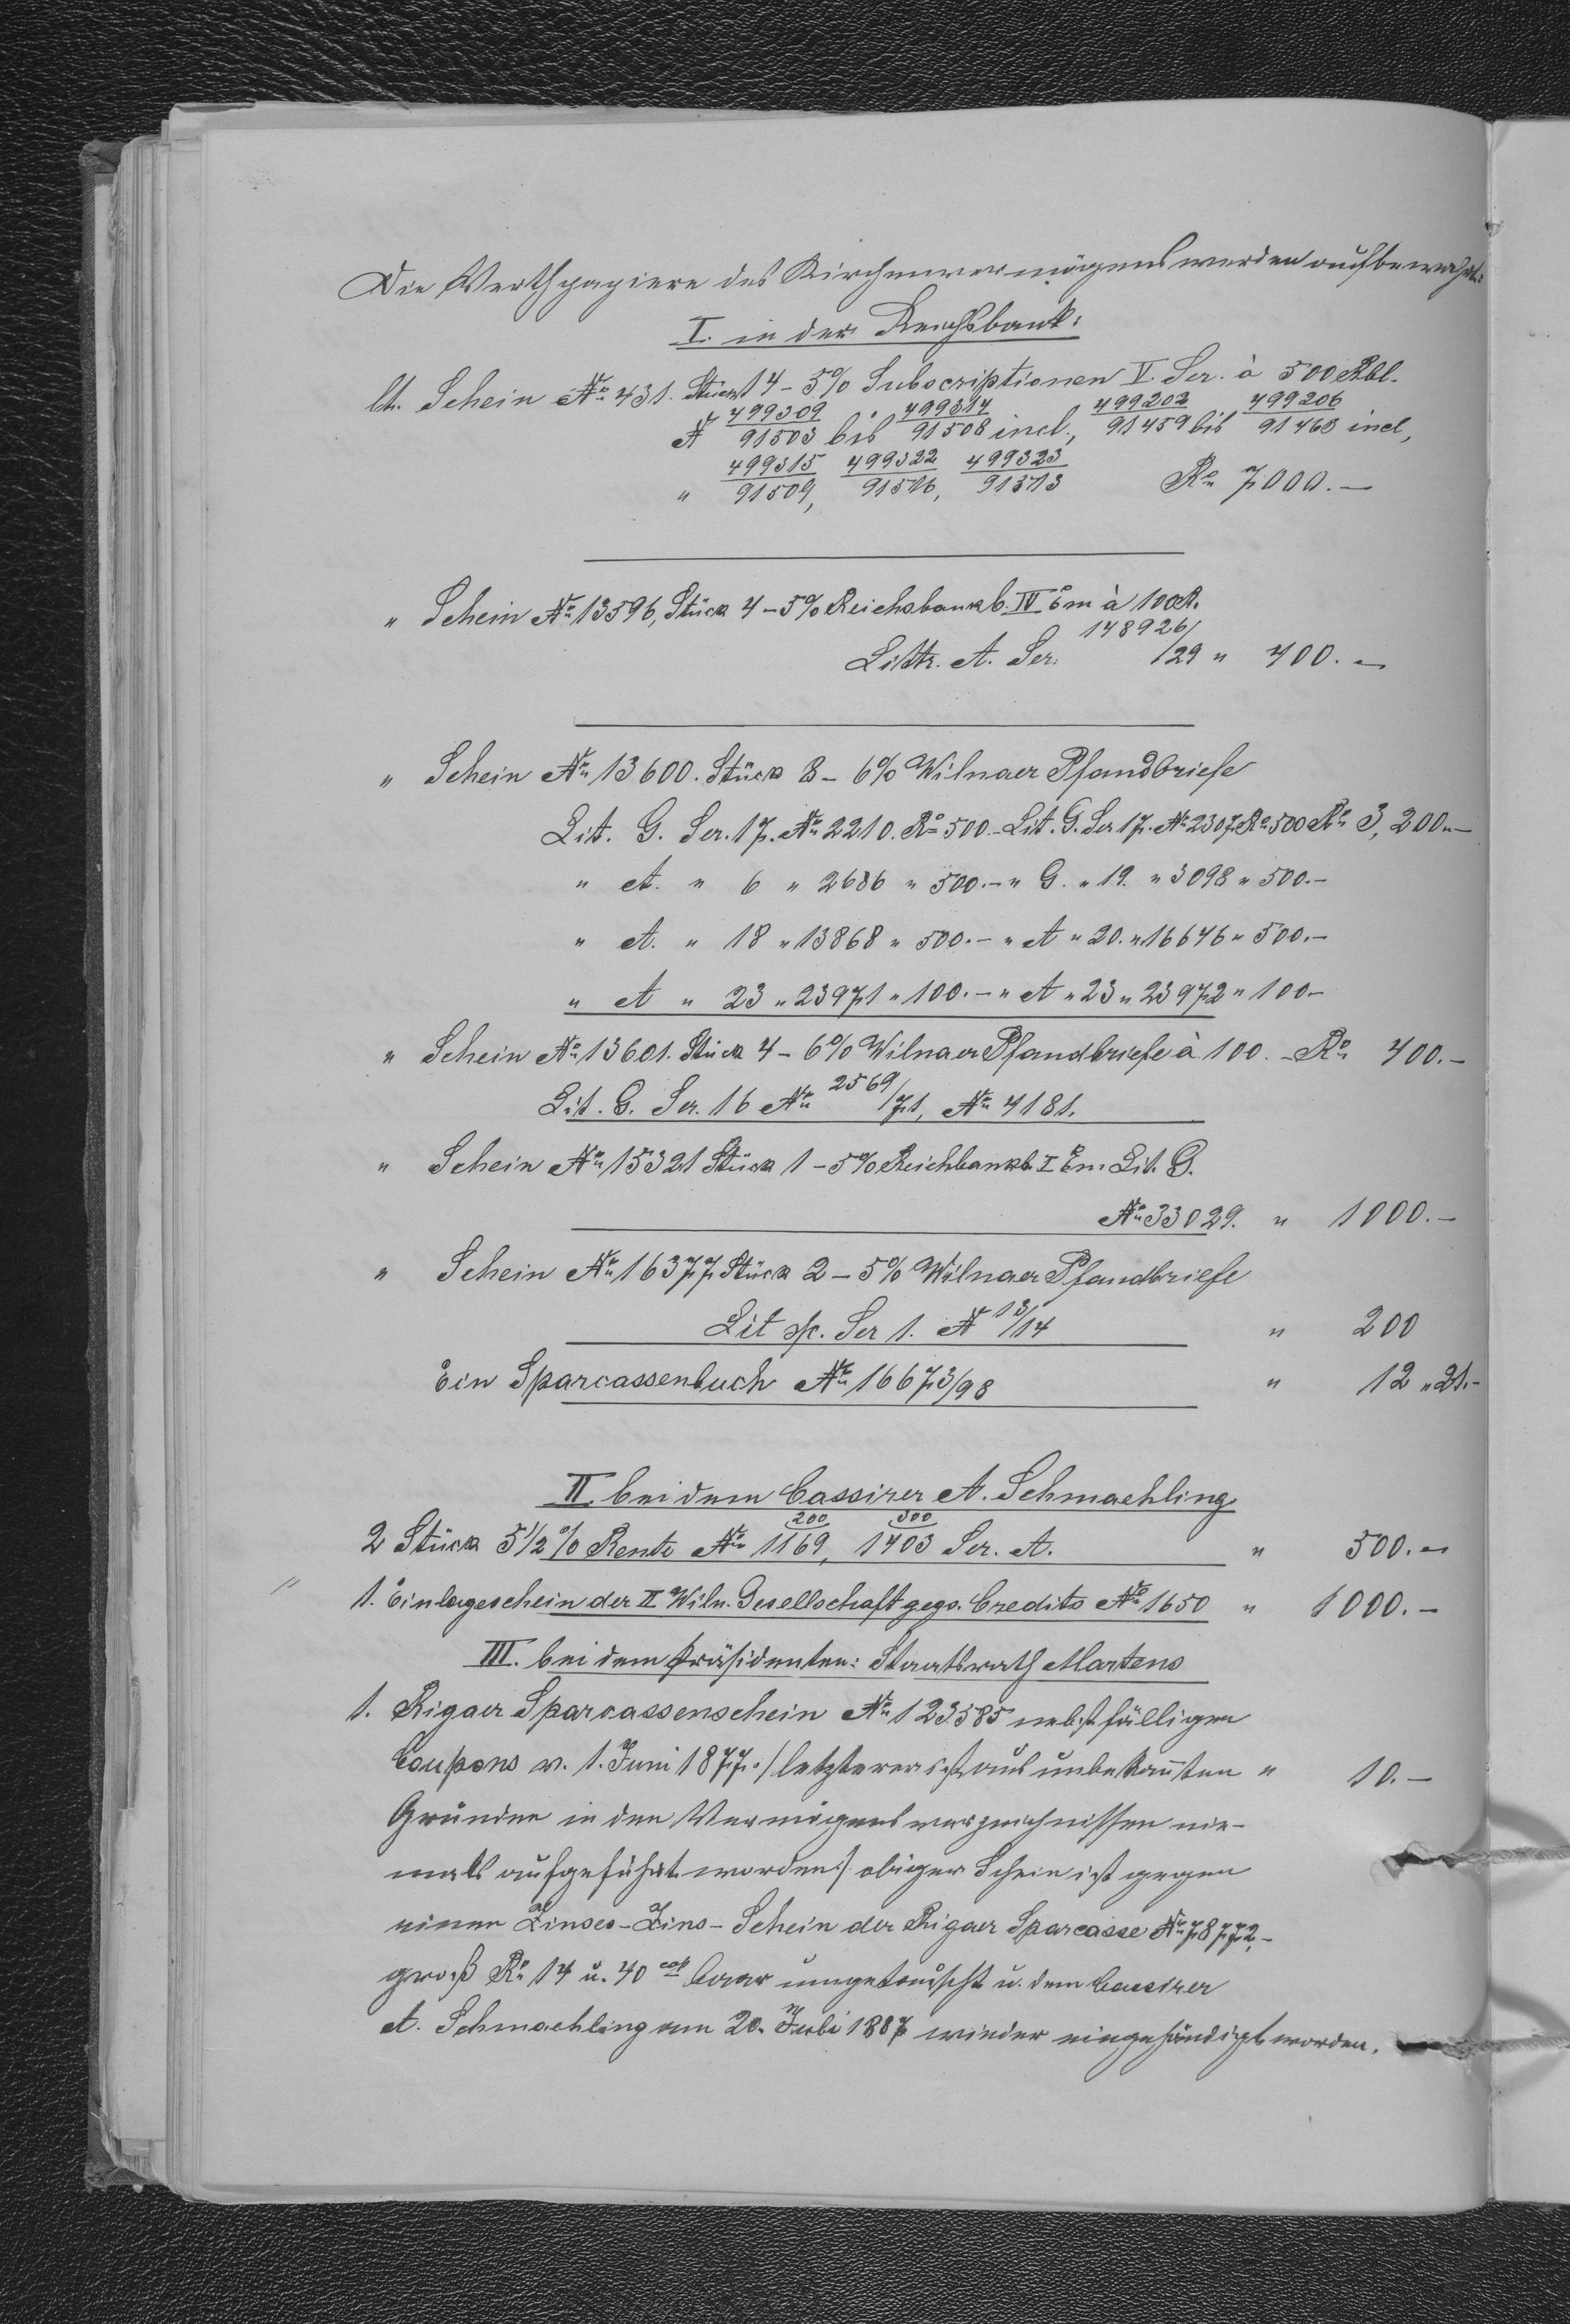 Die Werthpapiere des Kirchenvermögens werden aufbewahrt:
I. in der Reichsbank:
lt. Schein No 431. Stück 14 - 5% Subscriptionen V. Ser. à 500 Rbl.
499309 499314 499202 499206
N 91503 bis 91508 incl., 91459 bis 91463 incl,
499315 499322 499323
" 91509, 91516, 91513 Ro 7000.—
" Schein No 13596, Stück 4 - 5% Reichsbankb. IV Em à 100 R.
148926/
Littr. A. Ser: /29 " 400.—
" Schein No 13600. Stück 8 - 6% Wilnaer Pfandbriefe
Lit. G. Ser. 17. No 2210. Ro 500.- Lit. G. Ser 17. No 2307 Ro 500 Ro 3,200.—
" A. " 6 " 2686 " 500.- " G. " 19. " 3098 " 500.-
" A. " 18 " 13868 " 500.- " A " 20. " 16646 " 500.-
" A " 23 " 23971 " 100.- " A " 23 " 23972 " 100.-
" Schein No 13601. Stück 4 - 6% Wilnaer Pfandbriefe à 100. - Ro 400.-
Lit. G. Ser. 16 No 2569/71, No 4181.
" Schein No 15321 Stück 1 - 5% Reichbankb. I Em. Lit. G.
No 33029. " 1000.-
" Schein No 16377 Stück 2 - 5% Wilnaer Pfandbriefe
Lit Ser 1. N 13/14 " 200
Ein Sparcassenbuch No 16673/98 " 12 " 21.-
II bei dem Cassirer A. Schmaehling
200 300
2 Stück 5 1/2% Rente No 1169, 1403 Ser. A. " 500.—
1. Einlageschein der II Wiln. Gesellschaft gegs. Credits No 1650 " 1000.-
III. bei dem Präsidenten: Staatsrath Martens
1. Rigaer Sparcassenschein No 123585 nebst fälligen
Coupons v. 1. Juni 1877. /letzterer ist aus unbekannten " 10.-
Gründen in den Vermögensverzeichnissen nie-
mals aufgeführt worden/ obiger Schein ist gegen
einen Zinses-Zins-Schein der Rigaer Sparcasse No 78772,-
groß Ro 14 u. 40 cop baar umgetauscht u. dem Cassirer
A. Schmaehling am 20. Juli 1887 wieder eingehändigt worden.